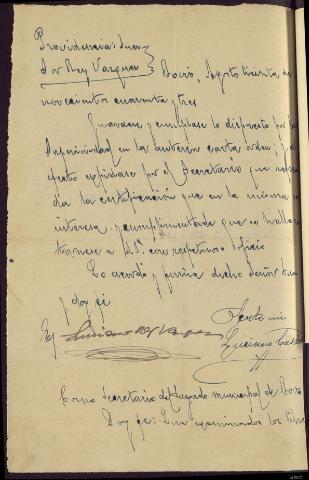 Providencia: Juez
Sr Rey Vazquez } Boiro, Agosto treinta de
novecientos cuarenta y tres
Guardese y cumplase lo dispuesto por la
Superioridad en la anterior carta orden; y al
efecto expidase por el Secretario que refren
da la certificación que en la misma se
interesa y cumplimentada que se halle
tornese a S.Sª con respetuoso oficio
Lo acordó y firma dicho Señor Juez
y doy fé
Luciano Rey Vazquez
Ante mi
Luciano
Como Secretario del Juzgado municipal de Boiro
Doy fé: Que examinados los libros